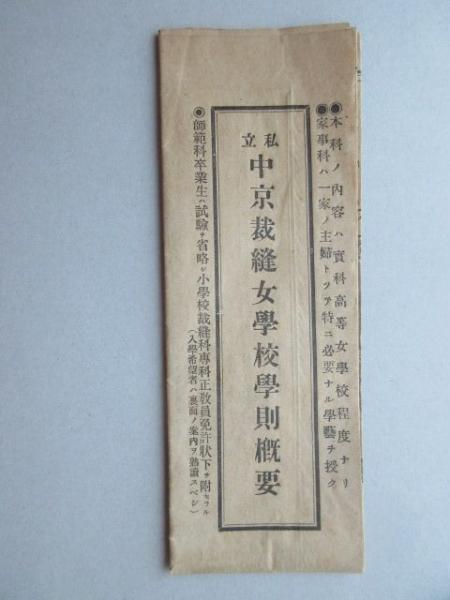 ●本科ノ內容ハ實科高等女學校程度ナリ
●家事科ハ一家ノ主婦トシテ特ニ必要ナル學藝ヲ授ク
私立
中京裁縫女學校學則概要
◉師範科卒業生ハ試驗ヲ省略シ小學校裁縫科專科正敎員免許狀下附セラル
(入學希望者ハ裏面ノ案內ヲ熟讀スベシ)